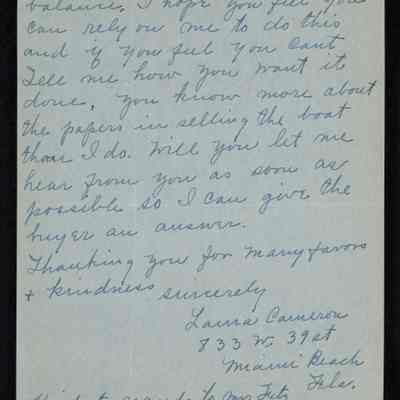 balance. I hope you feel you
can rely on me to do this
and if you feel you cant
Tell me how you want it
done, you know more about
the papers in selling the boat
than I do. Will you let me
hear from you as soon as
possible so I can give the
buyer an answer.
Thanking you for many favors
+ kindness sincerely
Laura Cameron
833 W. 39 st
Miami Beach
Fla.
regards to Mr